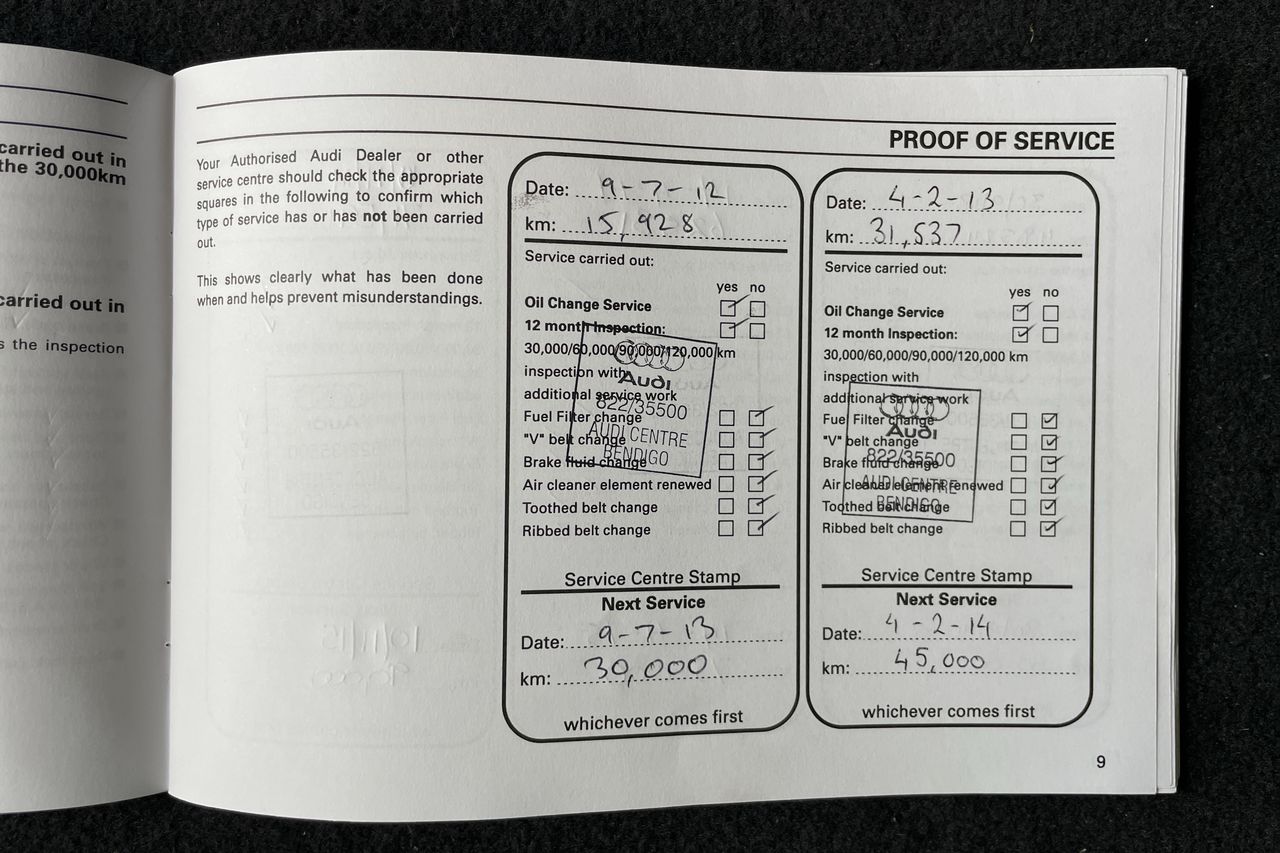 carried out in
the 30,000km
carried out in
s the inspection
PROOF OF SERVICE
Your Authorised Audi Dealer or other
service centre should check the appropriate
squares in the following to confirm which
type of service has or has not been carried
out.
This shows clearly what has been done
when and helps prevent misunderstandings.
Date: 9-7-12
km: 15,928
Service carried out:
yes no
Oil Change Service
12 month Inspection:
30,000/60,000/90,000/120,000 km
inspection with
additional service work
Fuel Filter change
"V" belt change
Brake fluid change
Air cleaner element renewed
Toothed belt change
Ribbed belt change
Audi
822/35500
AUDI CENTRE
BENDIGO
Service Centre Stamp
Next Service
Date: 9-7-13
km: 30,000
whichever comes first
Date: 4-2-13
km: 31,537
Service carried out:
yes no
Oil Change Service
12 month Inspection:
30,000/60,000/90,000/120,000 km
inspection with
additional service work
Fuel Filter change
"V" belt change
Brake fluid change
Air cleaner element renewed
Toothed belt change
Ribbed belt change
Audi
822/35500
AUDI CENTRE
BENDIGO
Service Centre Stamp
Next Service
Date: 4-2-14
km: 45,000
whichever comes first
9